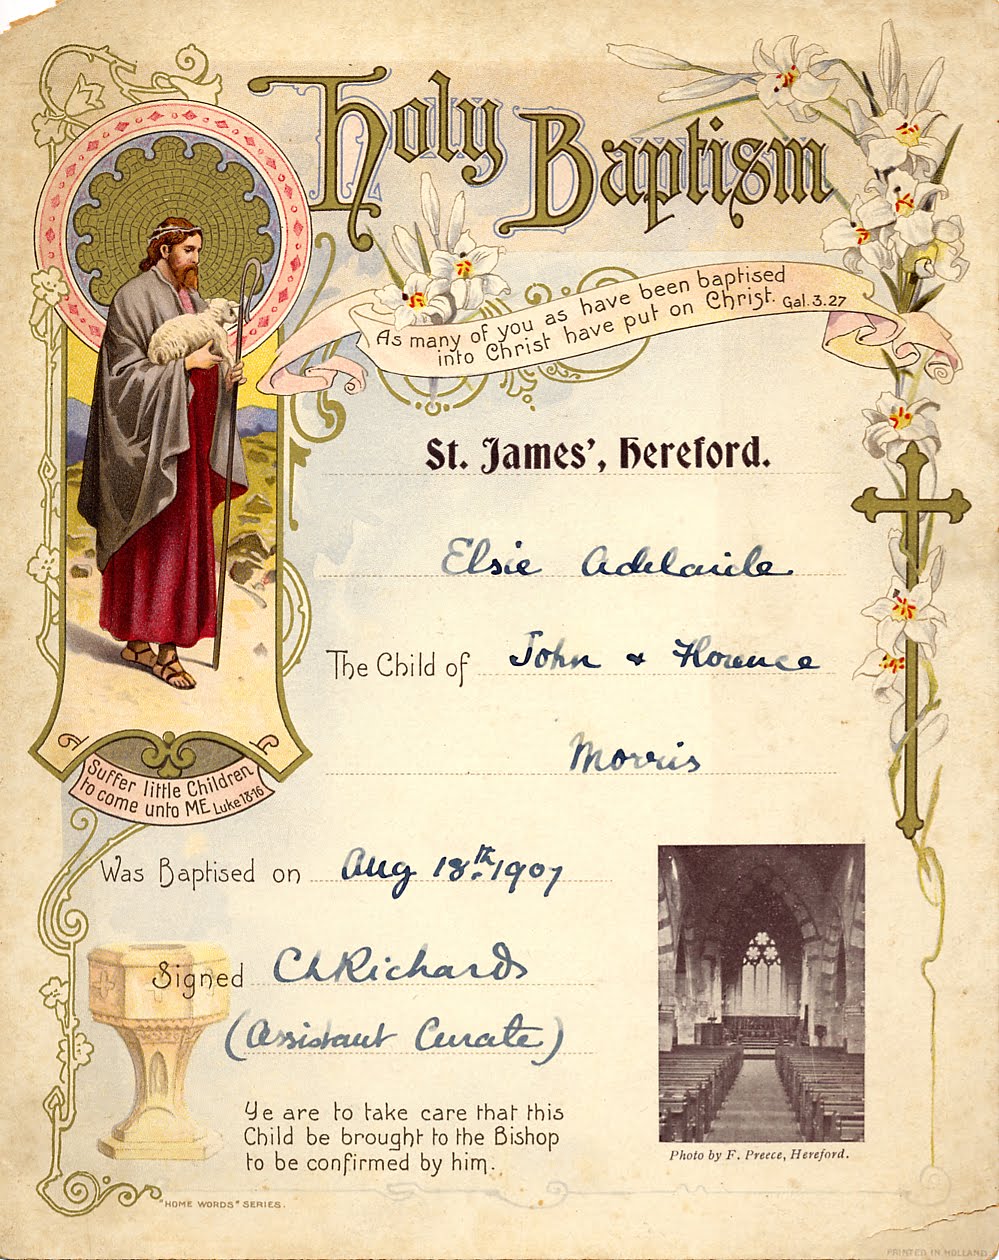 Holy Baptism
As many of you as have been baptised
into Christ have put on Christ. Gal. 3.27
St. James', Hereford.
Elsie Adelaide
The Child of John & Florence
Morris
Suffer little Children
to come unto ME Luke 18-16
Was Baptised on Aug 18th. 1907
Signed C L Richards
(Assistant Curate)
Ye are to take care that this
Child be brought to the Bishop
to be confirmed by him.
Photo by F. Preece, Hereford.
"HOME WORDS" SERIES.
PRINTED IN HOLLAND